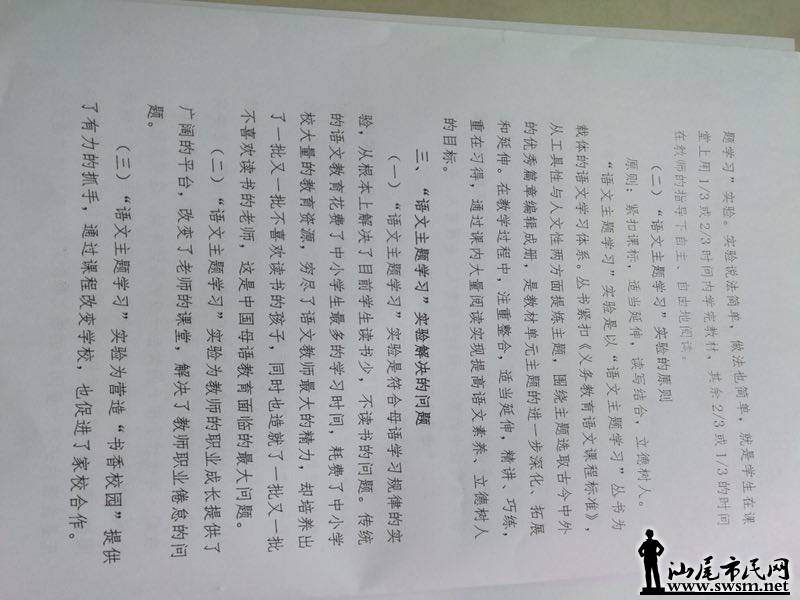 题学习”实验。实验说法简单，做法也简单，就是学生在课
堂上用 1/3 或 2/3 时间内学完教材，其余 2/3 或 1/3 的时间
在教师的指导下自主、自由地阅读。
（二）“语文主题学习”实验的原则
原则：紧扣课标，适当延伸，读写结合，立德树人。
“语文主题学习”实验是以“语文主题学习”丛书为
载体的语文学习体系。丛书紧扣《义务教育语文课程标准》，
从工具性与人文性两方面提炼主题，围绕主题选取古今中外
的优秀篇章编辑成册，是教材单元主题的进一步深化、拓展
和延伸。在教学过程中，注重整合，适当延伸，精讲、巧练，
重在习得，通过课内大量阅读实现提高语文素养、立德树人
的目标。
三、“语文主题学习”实验解决的问题
（一）“语文主题学习”实验是符合母语学习规律的实
验，从根本上解决了目前学生读书少，不读书的问题。传统
的语文教育花费了中小学生最多的学习时间，耗费了中小学
校大量的教育资源，穷尽了语文教师最大的精力，却培养出
了一批又一批不喜欢读书的孩子，同时也造就了一批又一批
不喜欢读书的老师，这是中国母语教育面临的最大问题。
（二）“语文主题学习”实验为教师的职业成长提供了
广阔的平台，改变了老师的课堂，解决了教师职业倦怠的问
题。
（三）“语文主题学习”实验为营造“书香校园”提供
了有力的抓手，通过课程改变学校，也促进了家校合作。
汕尾市民网
www.swsm.net